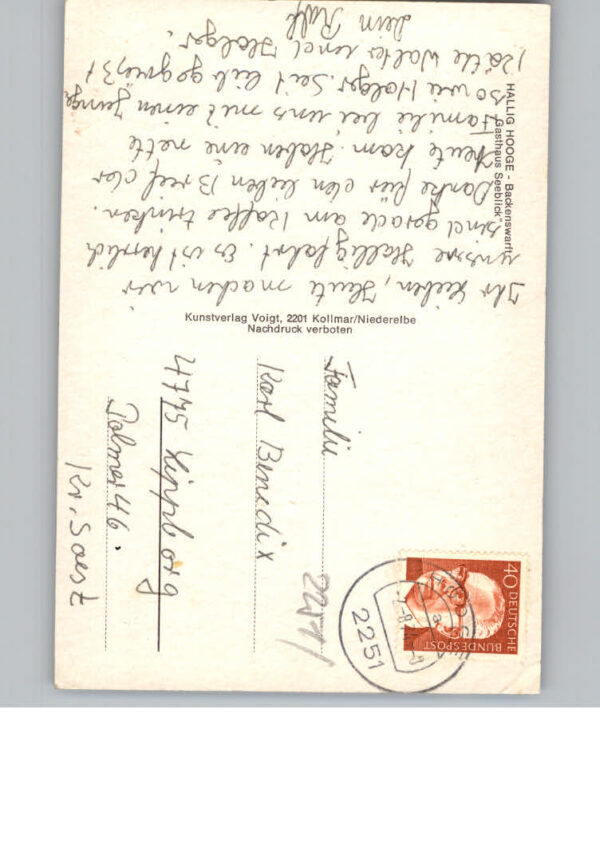 HALLIG HOOGE - Backenswarft
"Gasthaus Seeblick"
Ihr Lieben, Heute machen wir
unsre Halligfahrt. Es ist herrlich
sind gerade am Kaffee trinken.
Danke für den lieben Breef der
Heute kam. Haben eine nette
Familie bei uns mit einen Junge
so wie Holger. Seit lieb gegrüßt
Käthe Walter und Holger.
dein Ralf
Kunstverlag Voigt, 2201 Kollmar/Niederelbe
Nachdruck verboten
40 DEUTSCHE
BUNDESPOST
2251
Familie
Karl Benedix
4775 Lippborg
46.
Kr. Soest